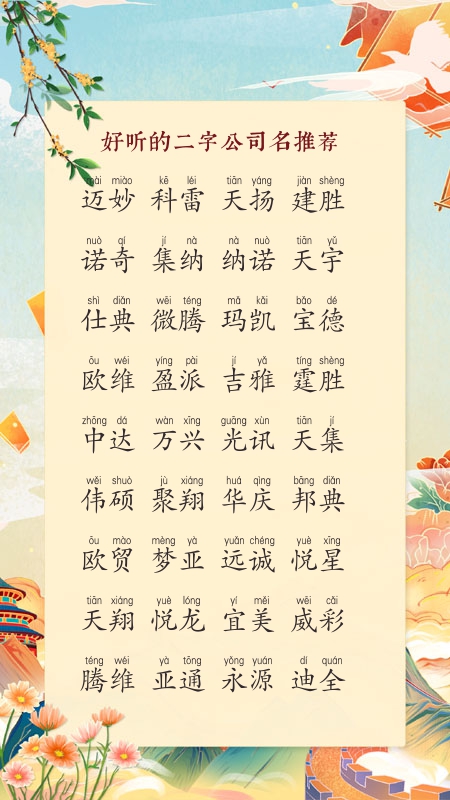 好听的二字公司名推荐
mài miào kē léi tiān yáng jiàn shèng
迈妙 科雷 天扬 建胜
nuò qí jí nà nà nuò tiān yǔ
诺奇 集纳 纳诺 天宇
shì diǎn wēi téng mǎ kǎi bǎo dé
仕典 微腾 玛凯 宝德
ōu wéi yíng pài jí yǎ tíng shèng
欧维 盈派 吉雅 霆胜
zhōng dá wàn xīng guāng xùn tiān jí
中达 万兴 光讯 天集
wěi shuò jù xiáng huá qìng bāng diǎn
伟硕 聚翔 华庆 邦典
ōu mào mèng yà yuǎn chéng yuè xīng
欧贸 梦亚 远诚 悦星
tiān xiáng yuè lóng yí měi wēi cǎi
天翔 悦龙 宜美 威彩
téng wéi yà tōng yǒng yuán dí quán
腾维 亚通 永源 迪全